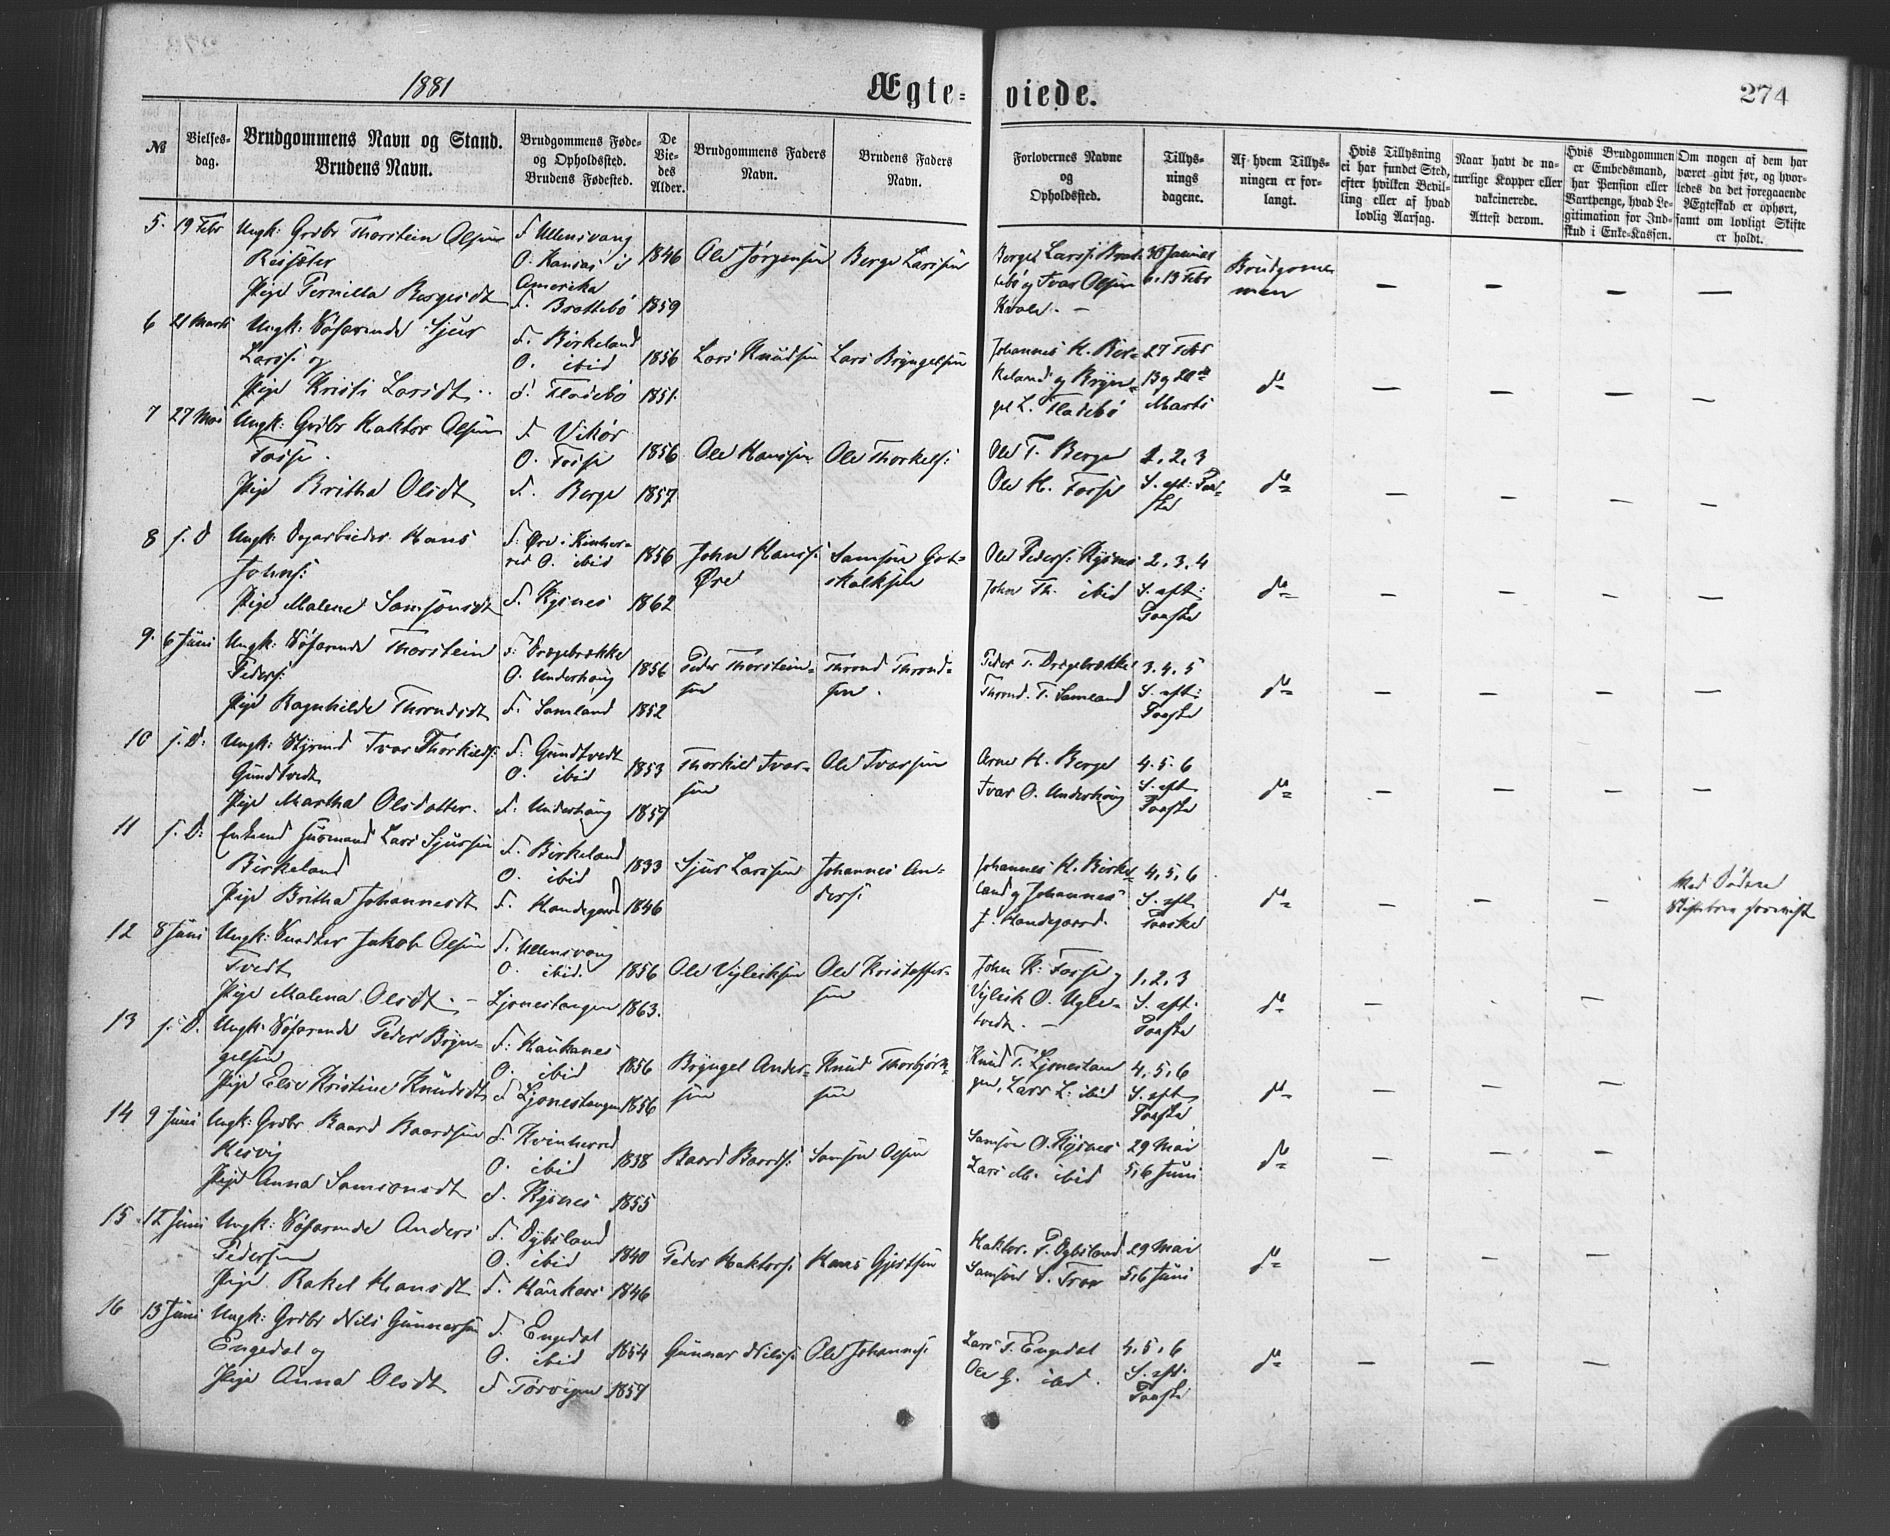 1881
Ægte-viede.
274
№
Vielses-dag.
Brudgommens Navn og Stand.
Brudens Navn.
Brudgommens Føde-
og Opholdssted.
Brudens Fødested.
De
Vie-
des
Alder.
Brudgommens Faders
Navn.
Brudens Faders
Navn.
Forlovernes Navne
og
Opholdssted.
Tillys-
nings
dagene.
Af hvem Tillys-
ningen er for-
langt.
Hvis Tillysning
ei har fundet Sted,
efter hvilken Bevil-
ling eller af hvad
lovlig Aarsag.
Naar havt de na-
turlige Kopper eller
vakcinerede.
Attest derom.
Hvis Brudgommen
er Embedsmand,
har Pension eller
Vartpenge, hvad Le-
gitimation for Ind-
skud i Enke-Kassen.
Om nogen af dem har
været givt før, og hvor-
ledes da det foregaaende
Ægteskab er ophørt,
samt om lovligt Skifte
er holdt.
5. 19 Febr Ungk: Grdbr Thorstein Olsen
Reisæter
Pige Pernilla Borgesdt
F. Ullensvang
O. Kansas i
Amerika
F. Brattebø
1846
1859
Ole Jørgensen
Berge Larssen
Borge Larss: Brat-
tebø og Ivar Olsen
Kvale. —
30 Januar
6. 13 Febr
Brudgom-
men
6 21 Marts Ungk: Søfarende Sjur
Larss: og
Pige Kristi Larsdt.
F. Birkeland
O. ibid
F. Fladebø
1856
1851.
Lars Knudsen
Lars Bryngelsen
Johannes H. Bir-
keland og Bryn-
gel L. Fladebø
27 Febr
13 og 20de
Marts
do
7 27 Mai Ungk: Grdbr Haktor Olsen
Fosse.
Pige Britha Olsdt
F. Vikør
O. Fosse
F. Berge
1856
1857
Ole Hanssen
Ole Thorkels:
Ole T. Berge
Ole H. Fosse
1, 2, 3
S. eft: Paa-
ske
do
8 s. D Ungk: Dagarbeider Hans
Johns:
Pige Malene Samsonsdt
F. Øre i Kvinher-
red O. ibid
F. Kysnes
1856
1862
John Hanss:
Øre
Samson Got-
skalksen
Ole Peders: Kysnes
John Th. ibid
2, 3, 4
S. eft:
Paaske
do
9. 6 Juni Ungk: Søfarende Thorstein
Peders:
Pige Ragnhilde Throndsdt
F. Drægebrække
O. Underhaug
F. Samland
1856
1852
Peder Thorstein-
sen
Thrond Thrond-
sen.
Peder T. Drægebrække
Thrond. T. Samland
3. 4. 5
S. eft:
Paaske
do
10 s. D: Ungk: Styrmd Ivar Thorkilds:
Gundtvedt
Pige Martha Olsdatter.
F. Gundtvedt
O. ibid
F. Underhaug
1853
1857
Thorkild Ivar-
sen
Ole Ivarsen
Arne H. Berge
Ivar O. Underhaug
4. 5. 6
S. eft
Paaske
do
11 s. D: Enkemd Husmand Lars Sjursen
Birkeland
Pige Britha Johannesdt
F. Birkeland
O. ibid
F. Handegaard
1833
1846
Sjur Larssen
Johannes An-
derss:
Johannes H. Birke-
land og Johannes
J. Handegaard.
4, 5, 6
S. eft
Paaske
do
12 8 Juni Ungk: Jakob Olsen
Tvedt
Pige Malena Olsdt. —
F. Ullensvang
O. ibid.
Ljonestangen
1856
1863.
Ole Vigleiksen
Ole Kristoffer-
sen
John K: Fosse og
Vigleik O. Ugle-
tvedt. —
1, 2, 3
S. eft.
Paaske
do
13 s. D. Ungk: Søfarende Peder Bryn-
gelsen
Pige Else Kristine Knudsdt
F. Haukanes
O. ibid
F. Ljonestangen
1856
1856
Bryngel Anders-
sen
Knud Thorbjørn-
sen
Knud T. Ljonestan-
gen, Lars L: ibid
4, 5, 6
S. eft
Paaske
do
14 9 Juni Ungk: Grdbr Baard Baardsen
Pige Anna Samsonsdt
F. Kvinherred
O. ibid
F. Kysnes
1838
1855
Baard Baards:
Samson Olsen
Samson O. Kysnes
Lars M. ibid
29 Mai
5, 6 Juni
do
15 12 Juni Ungk: Søfarende Anders
Pedersen
Pige Rakel Hansdt
F. Dybsland
O. ibid
F. Haukaas
1840
1846
Peder Haktors:
Hans Gjertsen
Haktor. P. Dybsland
Samson
29 Mai
5, 6 Juni
do
16 13 Juni Ungk: Grdbr Nils Gunnarsen
Engedal og
Pige Anna Olsdt
F. Engedal
O. ibid
F Tørvigen
1854
1857
Gunnar Nilss:
Ole Johanness:
Lars T. Engedal
Ole G. ibd.
4, 5, 6
S. eft.
Paaske
do